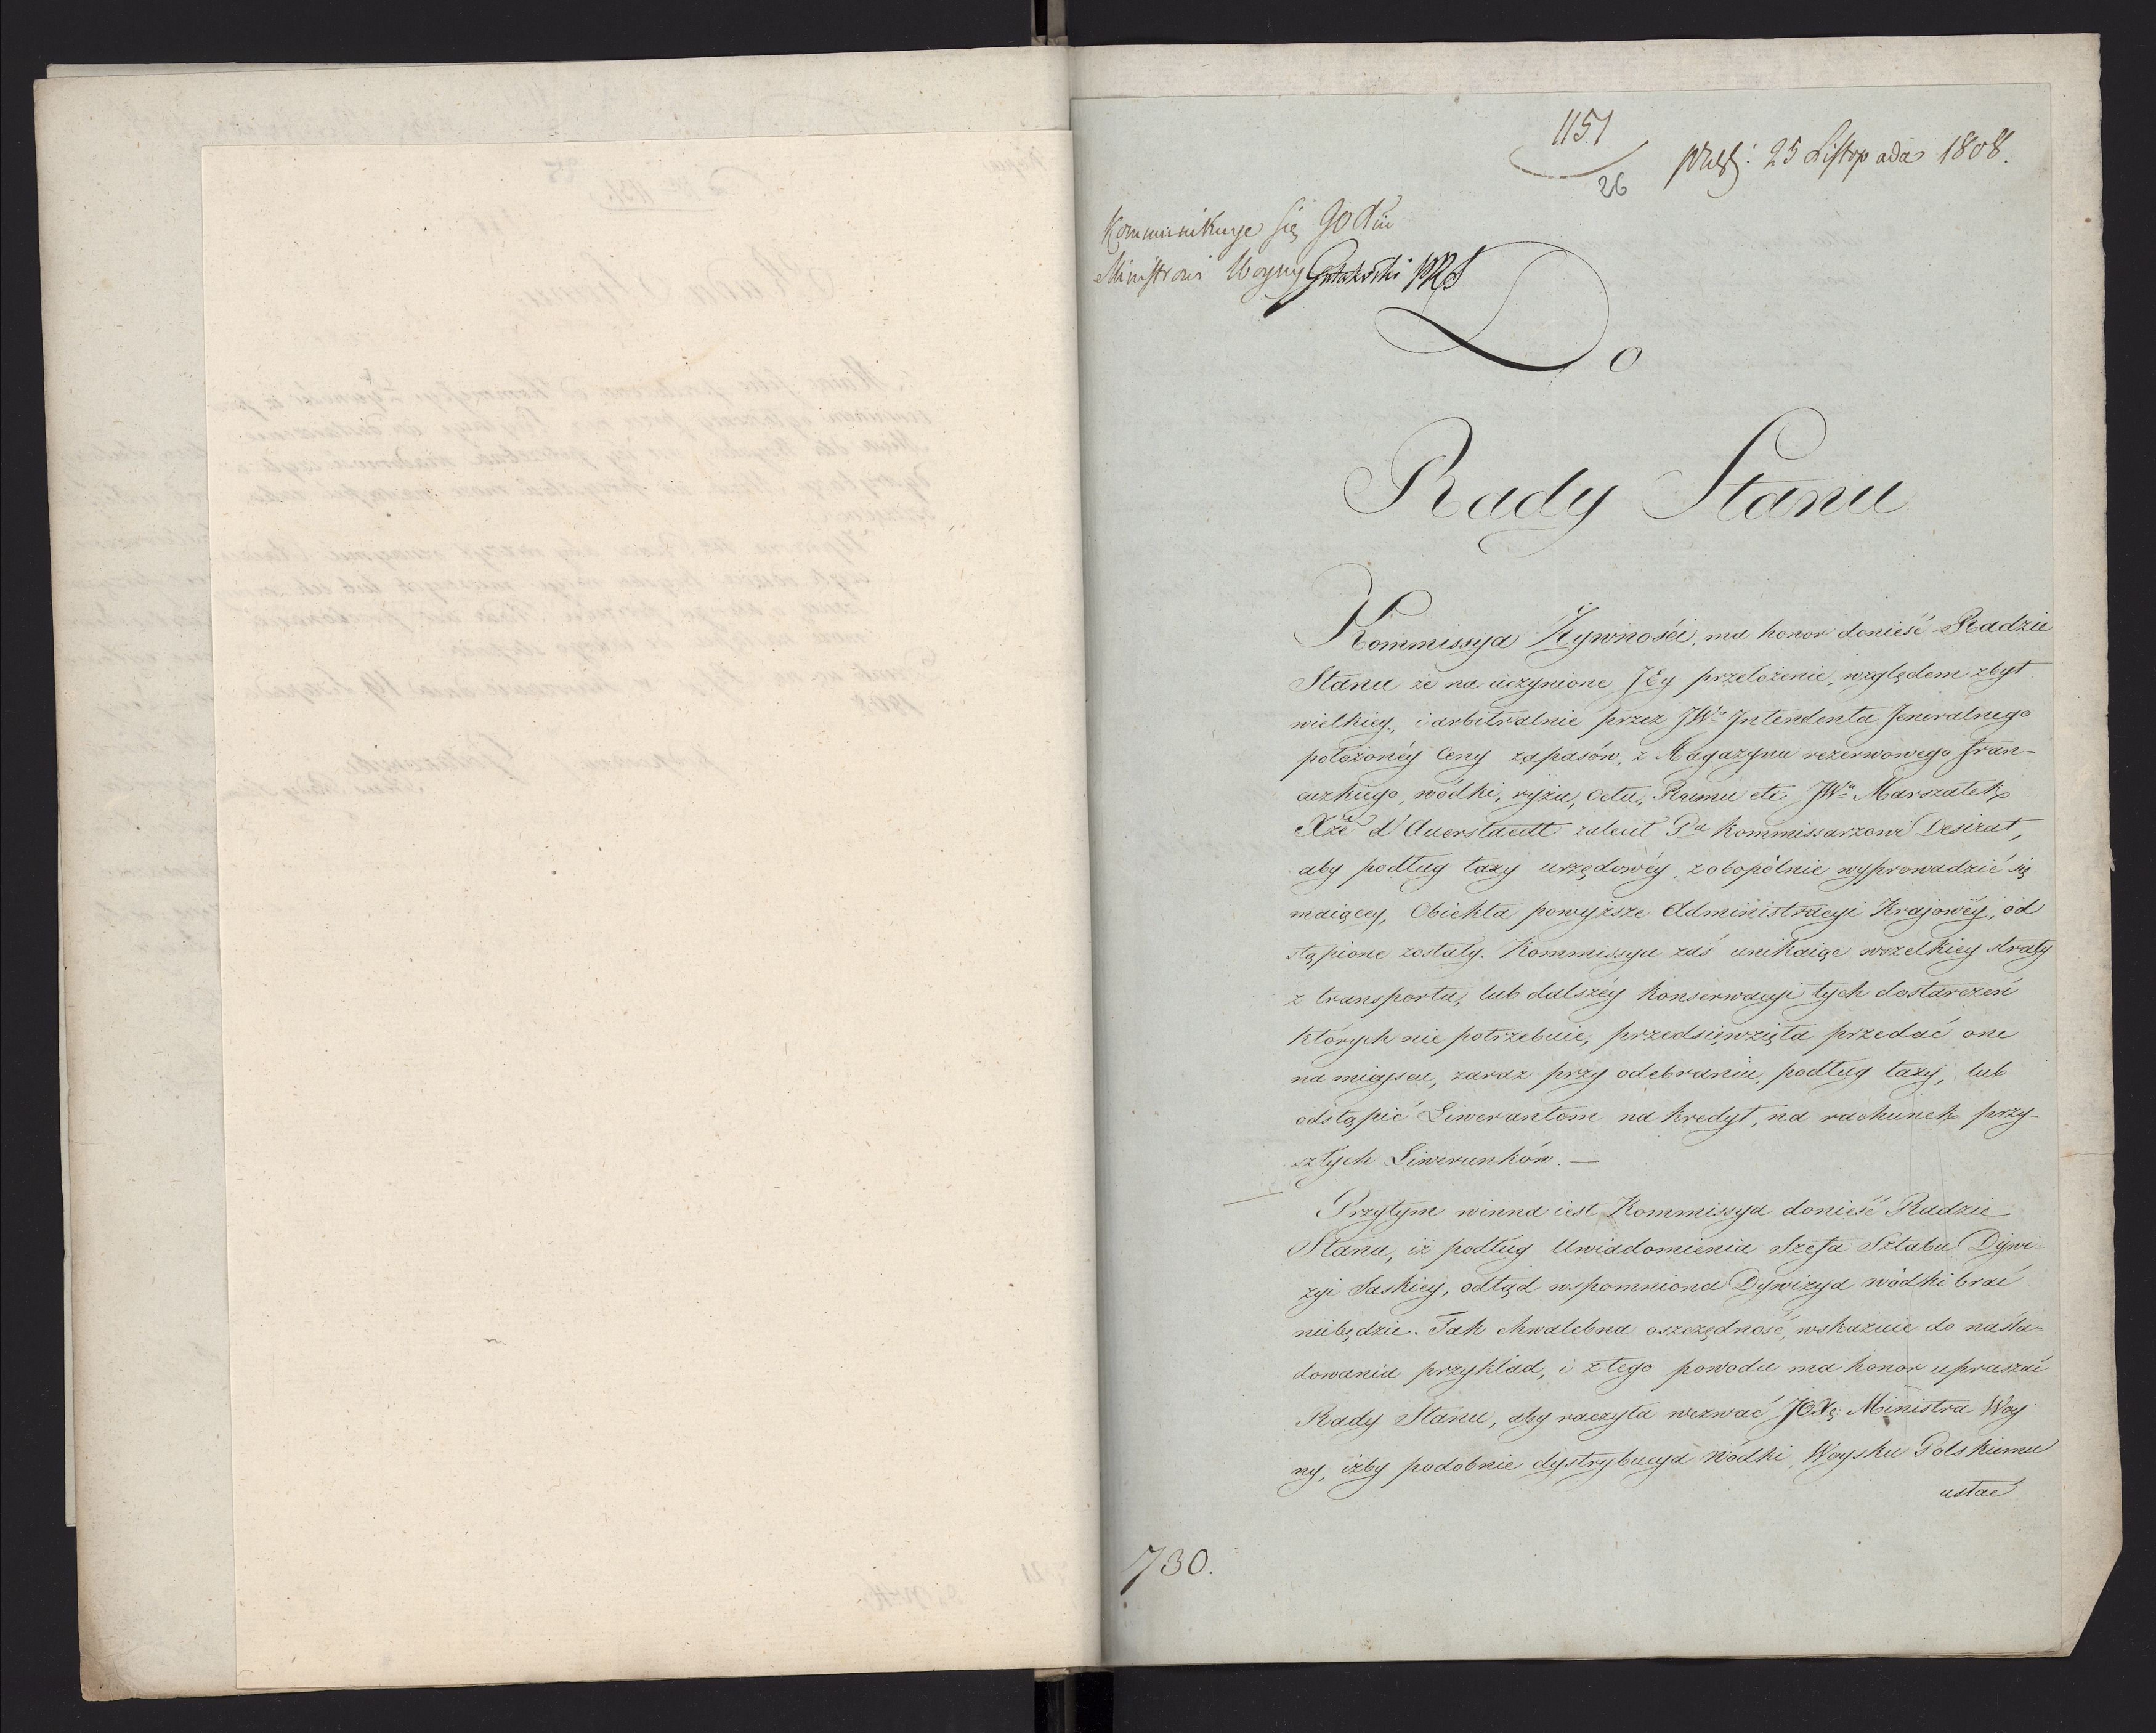 1151
26
25 Listopada 1808.
Kommunikuje się
Ministrowi Woyny Gutakowski PRS
Do
Rady Stanu
Kommissya Żywności, ma honor donieść Radzie
Stanu że na uczynione JEy przełożenie, względem zbyt
wielkiey, i arbitralnie przez JWo Jntendenta Jeneralnego
położonéy Ceny zapasów, z Magazynu rezerwowego fran-
cuzkiego, wódki, ryżu, Octu, Rumu etc: JWny Marszałek
Xże d'Auerstaedt zalecił Pu Kommissarzowi Desirat,
aby podług taxy urzędowéy, zobopólnie wyprowadzić się
maiącey, Obiekta powyższe Administracyi Krajowéy, od
stąpione zostały. Kommissya zaś unikaiąc wszelkiey straty
z transportu, lub dalszéy konserwacyi tych dostarczeń
których nie potrzebuie, przedsięwzięła przedać one
na mieyscu, zaraz przy odebraniu, podług taxy, lub
odstąpić Liwerantom na kredyt, na rachunek przy-
szłych Liwerunków. —
Przytym winna iest Kommissya donieść Radzie
Stanu, iż podług Uwiadomienia Szefa Sztabu Dywi-
zyi Saskiey, odtąd wspomniona Dywizya wódki brać
niebędzie. Tak chwalebna oszczędność, wskazuie do naśla-
dowania przykład, i z tego powodu ma honor upraszać
Rady Stanu, aby raczyła wezwać JOXcia Ministra Woy
ny, iżby podobnie dystrybucya Wódki Woysku Polskiemu
ustać
730.